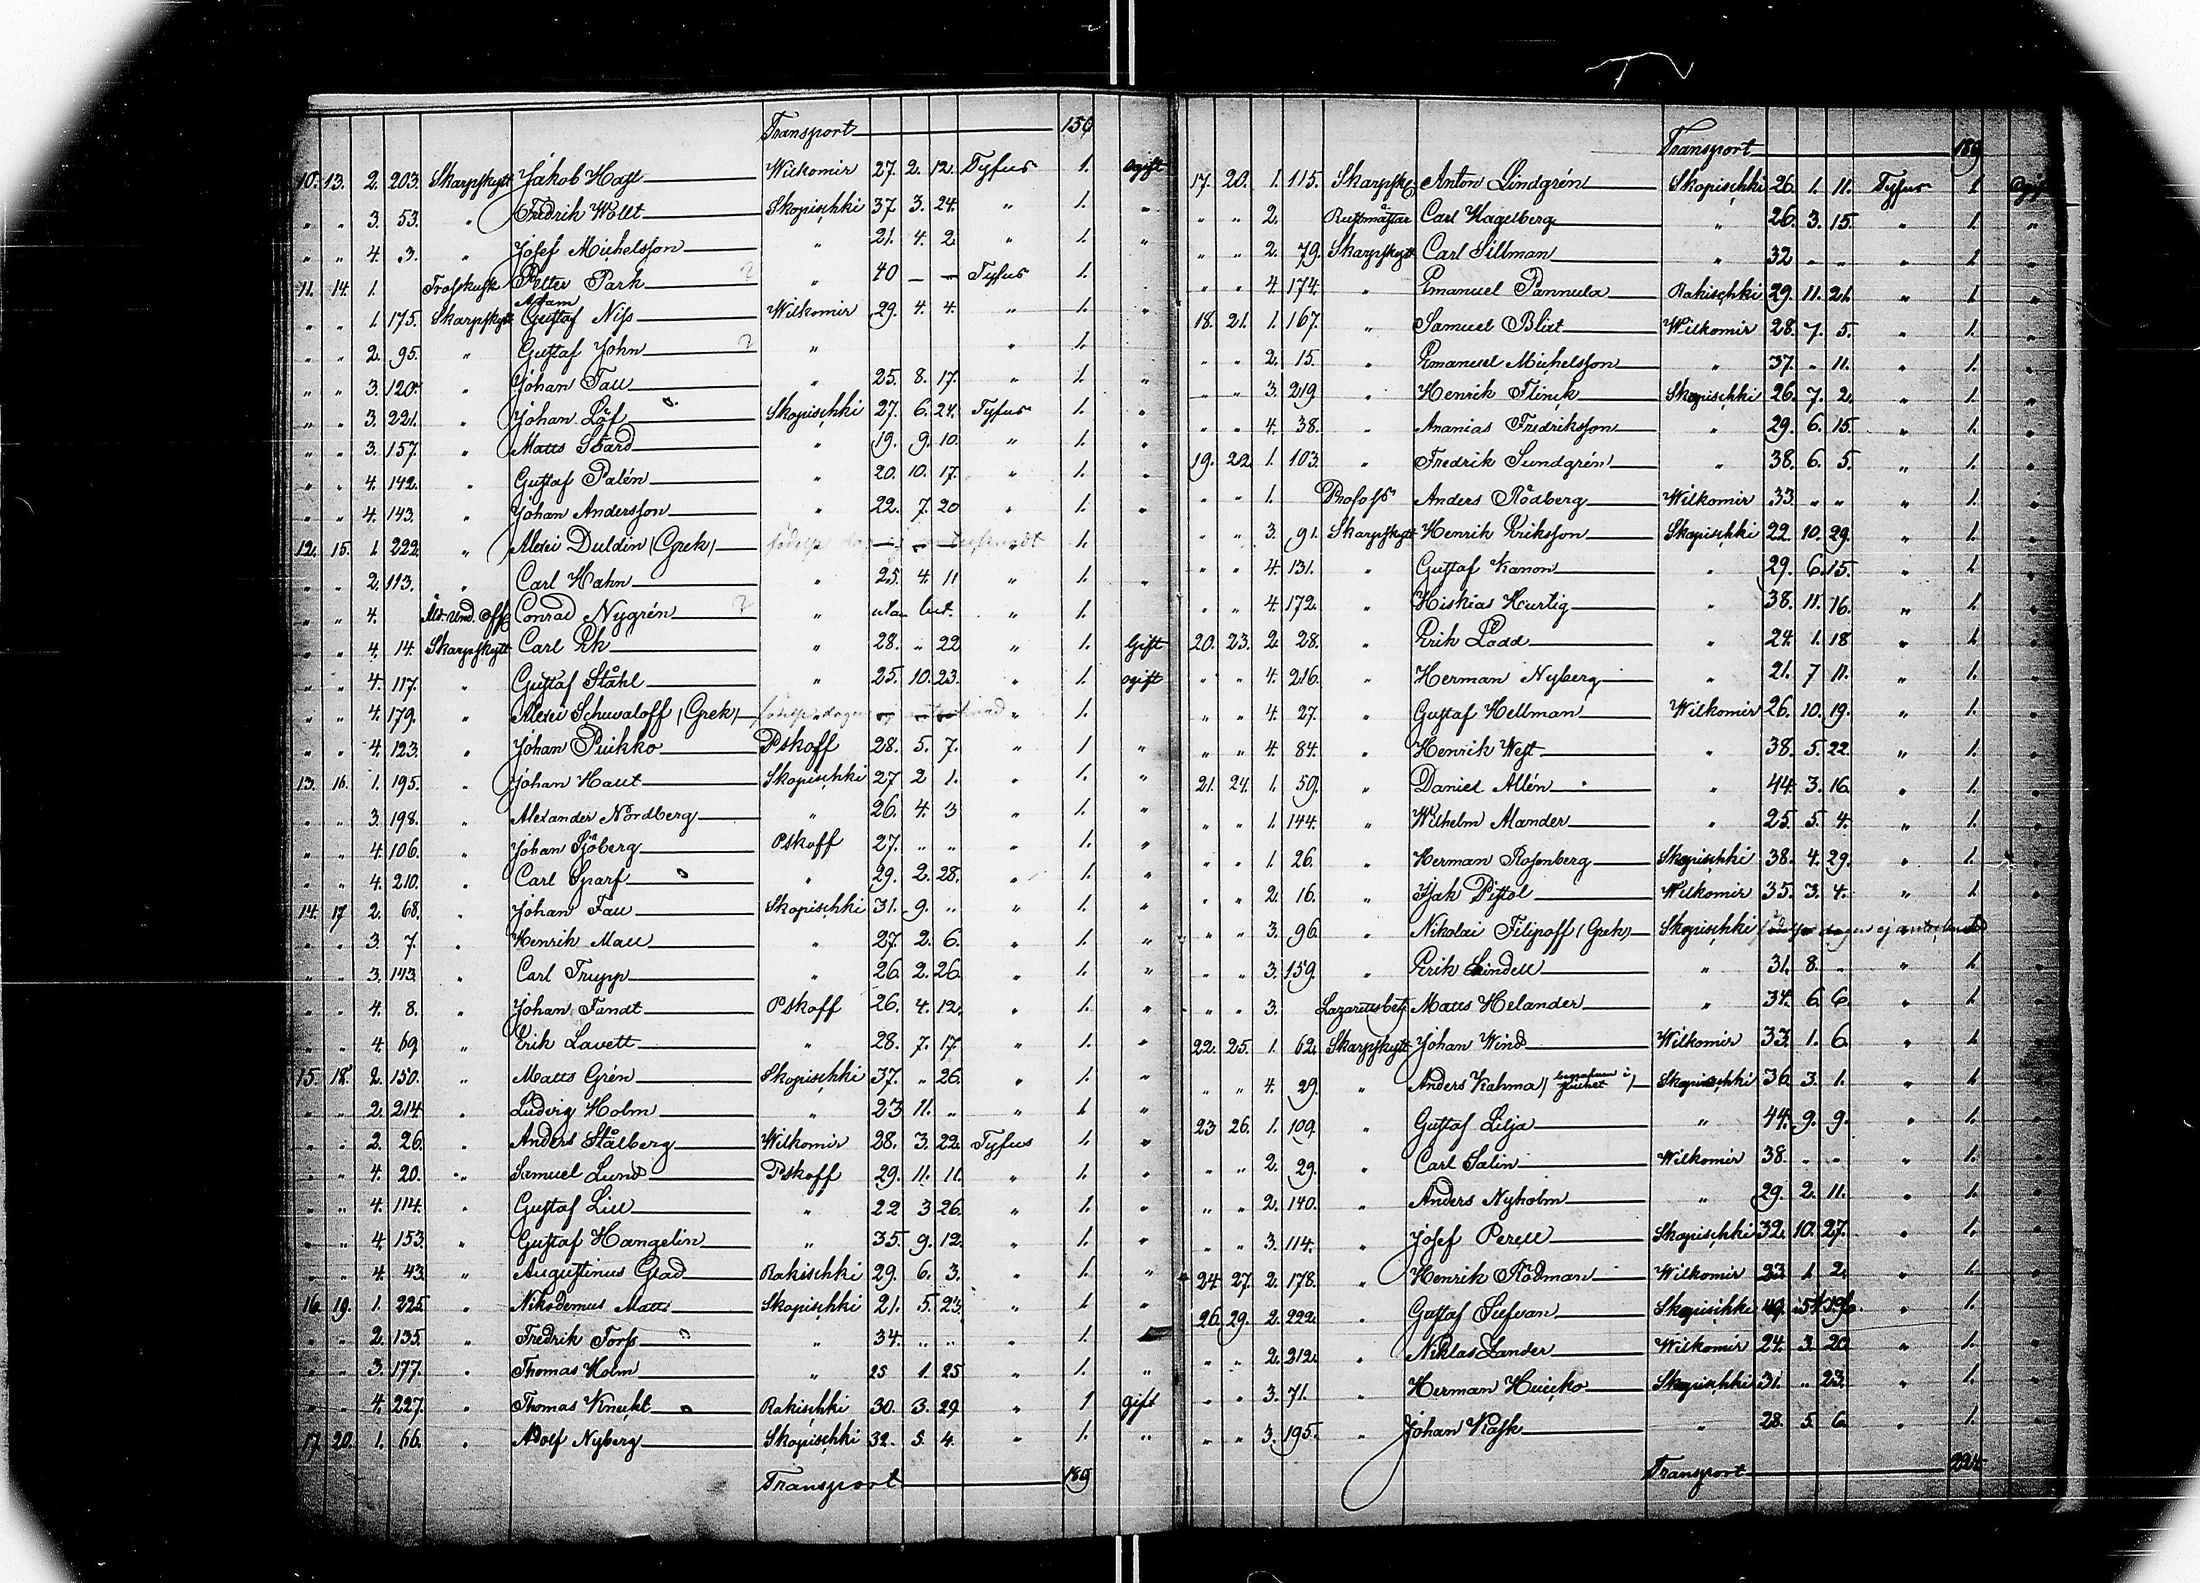 Transport 150
10. 13. 2. 203. Skarpskytt Jakob Hast Wilkomir 27. 2. 12. Tyfus 1. ogift
„ „ 3 53. „ Fredrik Wollt Skopischki 37. 3. 24. „ 1. „
„ „ 4. 3. „ Josef Michelsson „ 21. 4. 2. „ 1. „
11. 14. 1. Trosskusk Petter Park „ 40 — — Tyfus 1.
„ „ 1. 175. Skarpskytt Adam Gustaf Niss Wilkomir 29. 4. 4. „ 1. „
„ „ 2. 95. „ Gustaf John „ „ 1.
„ „ 3. 120. „ Johan Tall „ 25. 8. 17. „ 1. „
„ „ 3. 221. „ Johan Löf Skopischki 27. 6. 24. Tyfus 1. „
„ „ 3. 157. „ Matts „ 19. 9. 10. „ 1. „
„ „ 4. 142. „ Gustaf Palén „ 20. 10. 17. „ 1. „
„ „ 4. 143. „ Johan Andersson „ 22. 7. 20 „ 1. „
12. 15. 1. 222. „ Alexei Duldin (Grek) „ 1.
„ „ 2. 113. „ Carl Hahn „ 25. 4. 11 „ 1. „
„ „ 4. Und. Off. Conrad Nygrén „ utan lut. „ 1.
„ „ 4. 14. Skarpskytt Carl Ek „ 28. „ 22 „ 1. Gift
„ „ 4. 117. „ Gustaf Ståhl „ 25. 10. 23. „ 1. ogift
„ „ 4. 179. „ Alexei Schuvaloff (Grek) „ 1.
„ „ 4. 123. „ Johan Puikko Pskoff 28. 5. 7. „ 1 „
13. 16. 1. 195. „ Johan Haut Skopischki 27 2 1. „ 1. „
„ „ 3. 198. „ Alexander Nordberg „ 26. 4. 3 „ 1. „
„ „ 4. 106. „ Johan Sjöberg Pskoff 27. „ „ „ 1. „
„ „ 4. 210. „ Carl Sparf „ 29. 2. 28. „ 1 „
14. 17 2. 68. „ Johan Fall Skopischki 31. 9. „ „ 1. „
„ „ 3. 7. „ Henrik Mall „ 27. 2. 6. „ 1. „
„ „ 3. 143. „ Carl Trupp „ 26. 2. 26. „ 1. „
„ „ 4. 8. „ Johan Fundt Pskoff 26. 4. 12. „ 1. „
„ „ 4. 69 „ Erik Lavett „ 28. 7. 17 „ 1. „
15. 18. 2. 150. „ Matts Grén Skopischki 37. „ 26. „ 1. „
„ „ 2. 214. „ Ludvig Holm „ 23 11. „ „ 1 „
„ „ 2. 26. „ Anders Stålberg Wilkomir 28. 3. 22. Tyfus 1. „
„ „ 4. 20. „ Samuel Lund Pskoff 29. 11. 11. „ 1. „
„ „ 4. 114. „ Gustaf Lill „ 22 3 26. „ 1. „
„ „ 4. 153. „ Gustaf Hangelin „ 35. 9. 12. „ 1. „
„ „ 4. 43. „ Augustinus Glad Rakischki 29 6. 3. „ 1. „
16. 19. 1. 225. „ Nikodemus Matts Skopischki 21. 5. 23. „ 1 „
„ „ 2. 135. „ Fredrik Forss „ 34. „ „ „ 1.
„ „ 3. 177. „ Thomas Holm „ 25 1. 25 „ 1. „
„ „ 4. 227. „ Thomas Knecht Rakischki 30. 3. 29 „ 1 gift
17. 20. 1. 66. „ Adolf Nyberg Skopischki 32. 8. 4. „ 1. „
Transport 189
Transport 189
17. 20. 1. 115. Skarpsk. Anton Lindgrén Skopischki 26. 1. 11. Tyfus 1 Ogift
„ „ 2. Rustmästar Carl Hagelberg „ 26. 3. 15. „ 1. „
„ „ 2. 79. Skarpskytt Carl Sillman „ 32 „ „ „ 1 „
„ „ 4. 174. „ Emanuel Pannula Rakischki 29. 11. 21. „ 1 „
18. 21. 1. 167. „ Samuel Blixt Wilkomir 28. 7. 5. „ 1. „
„ „ 2. 15. „ Emanuel Michelsson „ 37. „ 11. „ 1. „
„ „ 3. 219 „ Henrik Flinck Skopischki 26. 7. 2. „ 1. „
„ „ 4. 38. „ Ananias Fredriksson „ 29. 6. 15. „ 1. „
19. 22. 1. 103. „ Fredrik Sundgrén „ 38. 6. 5. „ 1. „
„ „ 1. Profoss Anders Rödberg Wilkomir 33. „ „ „ 1. „
„ „ 3. 91. Skarpskytt Henrik Eriksson Skopischki 22. 10. 29. „ 1. „
„ „ 4. 131. „ Gustaf Kanon „ 29. 6. 15. „ 1. „
„ „ 4. 172. „ Hiskias Hurtig „ 38. 11. 16. „ 1. „
20. 23. 2. 28. „ Erik Ladd „ 24. 1. 18 „ 1. „
„ „ 4. 216. „ Herman Nyberg „ 21. 7 11. „ 1. „
„ „ 4. 27. „ Gustaf Hellman Wilkomir 26. 10. 19. „ 1. „
„ „ 4. 84. „ Henrik West „ 38. 5. 22. „ 1. „
21. 24. 1. 59. „ Daniel Allén „ 44. 3. 16. „ 1. „
„ „ 1. 144. „ Wilhelm Mander „ 25. 5. 4. „ 1. „
„ „ 1. 26. „ Herman Rosenberg Skopischki 38. 4. 29. „ 1. „
„ „ 2. 16. „ Isak Pistol Wilkomir 35. 3. 4. „ 1 „
„ „ 3. 96. „ Nikolai Filipoff (Grek) Skopischki födelse dagen ej antecknad
„ „ 3. 159. „ Erik Lindell „ 31. 8. „ „ 1. „
„ „ 3. Lazarettsbetj. Matts Helander „ 34. 6. 6. „ 1. „
22. 25. 1. 62. Skarpskytt Johan Wind Wilkomir 33. 1. 6. „ 1. „
„ „ 4. 29. „ Anders Kahma Skopischki 36. 3. 1. „ 1. „
23 26. 1. 109. „ Gustaf Lilja „ 44. 9. 9. „ 1. „
„ „ 2. 29. „ Carl Salin Wilkomir 38. „ „ „ 1. „
„ „ 2. 140. „ Anders Nyholm „ 29. 2. 11. „ 1. „
„ „ 3. 114. „ Josef Skopischki 32. 10. 27. „ 1. „
24 27. 2. 178. „ Henrik Rödman Wilkomir 23. 1. 2. „ 1. „
26. 29. 2. 222. „ Gustaf Skopischki „ 1. „
„ „ 2. 212. „ Niklas Lander Wilkomir 24. 3. 20 „ 1. „
„ „ 3. 71. „ Herman Skopischki 31. „ 23. „ 1. „
„ „ 3. 195. „ Johan Kask „ 28. 5. 6. „ 1. „
Transport